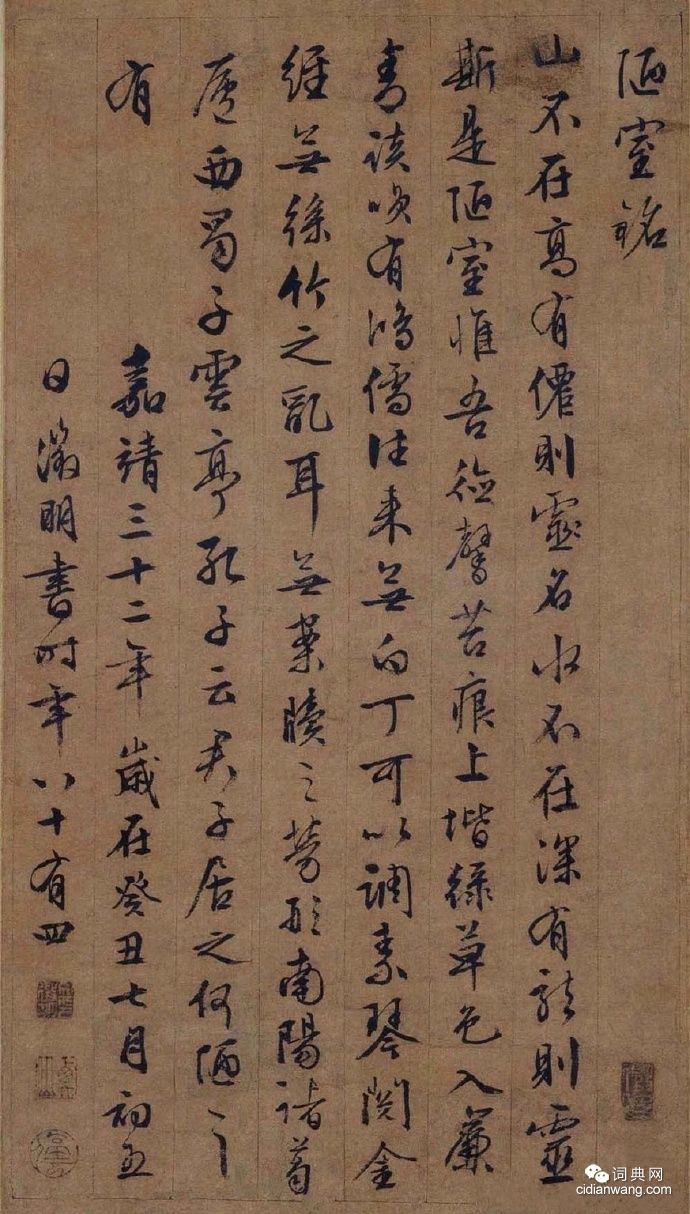 陋室銘
山不在高有僊則靈名水不在深有龍則靈
斯是陋室惟吾德馨苔痕上堦綠草色入簾
青談笑有鴻儒往来無白丁可以調素琴閱金
經無絲竹之亂耳無案牘之勞形南陽諸葛
廬西蜀子雲亭孔子云君子居之何陋之
有
嘉靖三十二年歲在癸丑七月初五
日徵明書時年八十有四
词典网
cidianwang.com